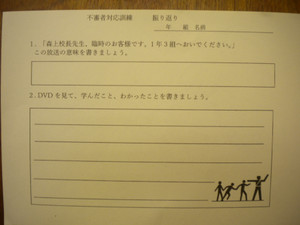 不審者対応訓練　振り返り
年　組　名前
1．「森上校長先生、臨時のお客様です。1年3組へおいでください。」
この放送の意味を書きましょう。
2．DVDを見て、学んだこと、わかったことを書きましょう。